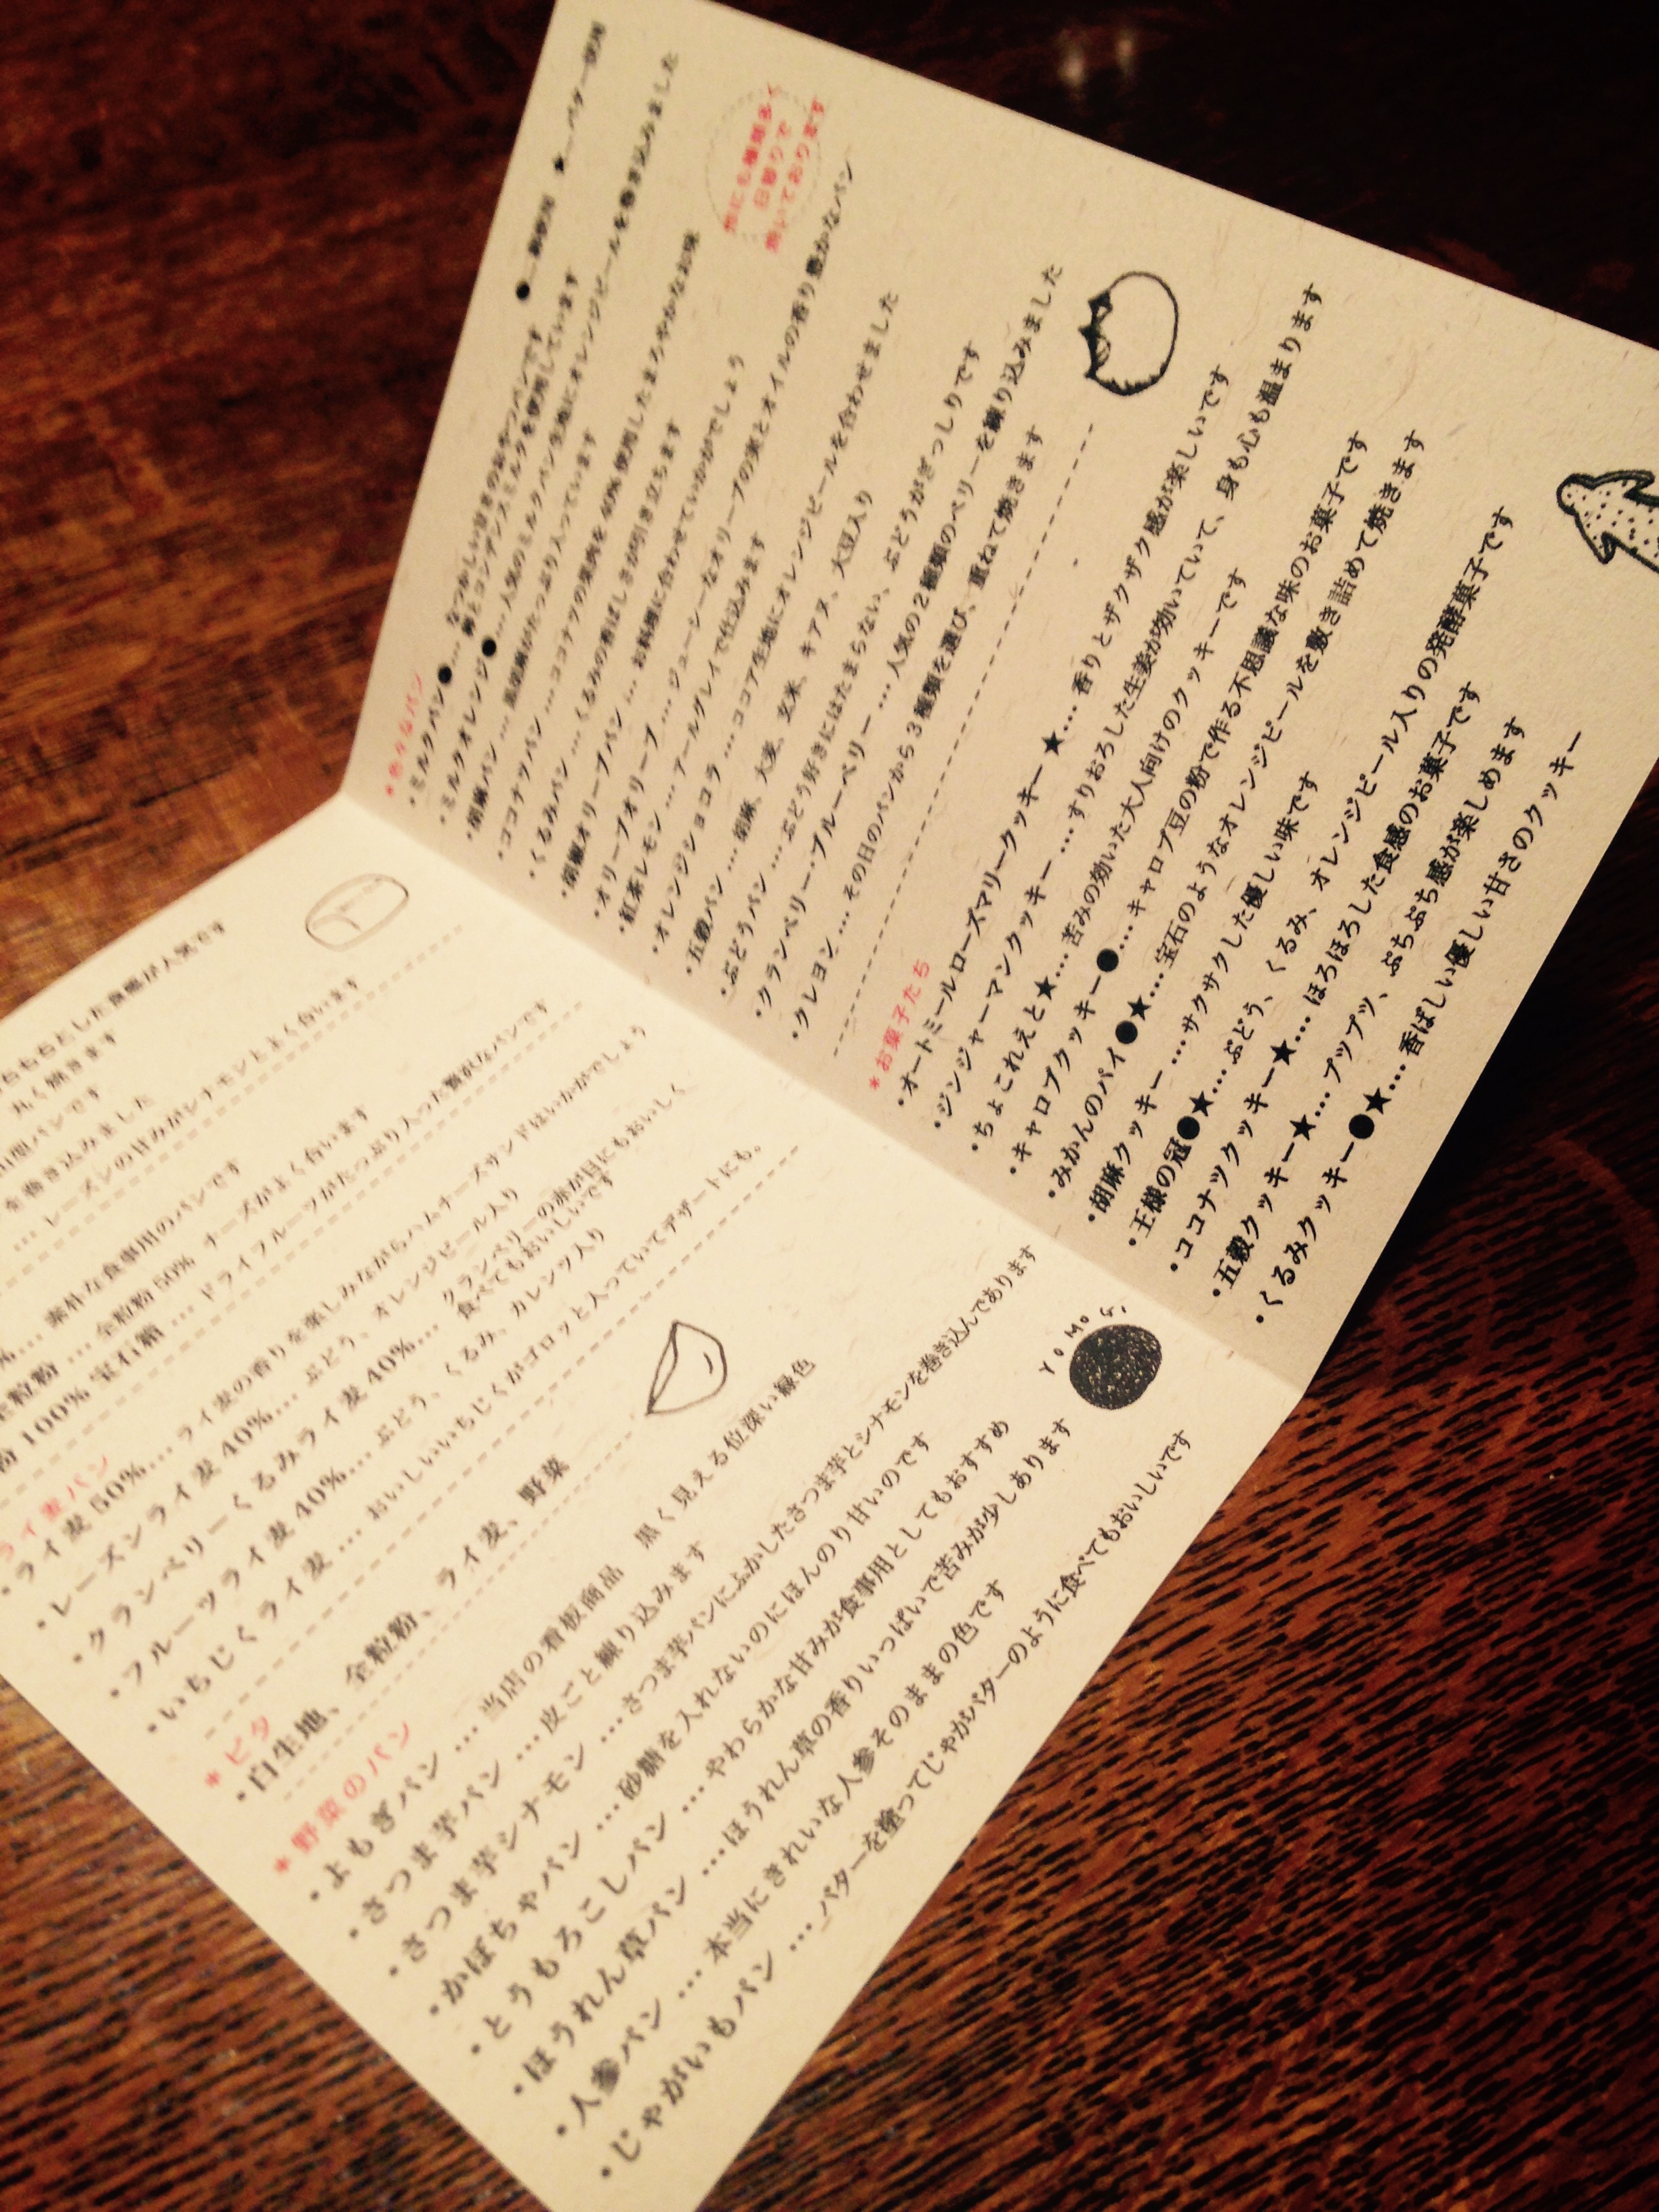 ちもちもとした食感が人気です
丸く焼きます
山型パンです
を巻き込みました
… レーズンの甘みがシナモンとよく合います
%… 素朴な食事用のパンです
全粒粉 … 全粒粉 50% チーズがよく合います
粉 100% 宝石箱 … ドライフルーツがたっぷり入った贅沢なパンです
ライ麦パン
・ライ麦 50%… ライ麦の香りを楽しみながらハムチーズサンドはいかがでしょう
・レーズンライ麦 40%… ぶどう、オレンジピール入り
・クランベリーくるみライ麦 40%… クランベリーの赤が目にもおいしく
食べてもおいしいです
・フルーツライ麦 40%… ぶどう、くるみ、カレンツ入り
・いちじくライ麦 … おいしいいちじくがゴロッと入っていてデザートにも。
*ピタ
・白生地、全粒粉、ライ麦、野菜
*野菜のパン
・よもぎパン … 当店の看板商品 黒く見える位深い緑色
・さつま芋パン … 皮ごと練り込みます
・さつま芋シナモン … さつま芋パンにふかしたさつま芋とシナモンを巻き込んであります
・かぼちゃパン … 砂糖を入れないのにほんのり甘いのです
・とうもろこしパン … やわらかな甘みが食事用としてもおすすめ
・ほうれん草パン … ほうれん草の香りいっぱいで苦みが少しあります
・人参パン … 本当にきれいな人参そのままの色です
・じゃがいもパン … バターを塗ってじゃがバターのように食べてもおいしいです
YOMOGI
●…卵使用 ★…バター使用
*色々なパン
・ミルクパン●… なつかしい甘さのおやつパンです
卵とコンデンスミルクを使用しています
・ミルクオレンジ●… 人気のミルクパン生地にオレンジピールを巻き込みました
・胡麻パン … 黒胡麻がたっぷり入っています
・ココナツパン … ココナツの果肉を 40% 使用したまろやかなお味
・くるみパン … くるみの香ばしさが引き立ちます
・胡椒オリーブパン … お料理に合わせていかがでしょう
・オリーブオリーブ … ジューシーなオリーブの実とオイルの香り豊かなパン
・紅茶レモン … アールグレイで仕込みます
・オレンジショコラ … ココア生地にオレンジピールを合わせました
・五穀パン … 胡麻、大麦、玄米、キアヌ、大豆入り
・ぶどうパン … ぶどう好きにはたまらない、ぶどうがぎっしりです
・クランベリー・ブルーベリー … 人気の2種類のベリーを練り込みました
・クレヨン … その日のパンから3種類を選び、重ねて焼きます
他にも種類多く
日替りで
焼いております
*お菓子たち
・オートミールローズマリークッキー★… 香りとザクザク感が楽しいです
・ジンジャーマンクッキー … すりおろした生姜が効いていて、身も心も温まります
・ちょこれえと★… 苦みの効いた大人向けのクッキーです
・キャロブクッキー●… キャロブ豆の粉で作る不思議な味のお菓子です
・みかんのパイ●★… 宝石のようなオレンジピールを敷き詰めて焼きます
・胡麻クッキー … サクサクした優しい味です
・王様の冠●★… ぶどう、くるみ、オレンジピール入りの発酵菓子です
・ココナツクッキー★… ほろほろした食感のお菓子です
・五穀クッキー★… プップツ、ぷちぷち感が楽しめます
・くるみクッキー●★… 香ばしい優しい甘さのクッキー